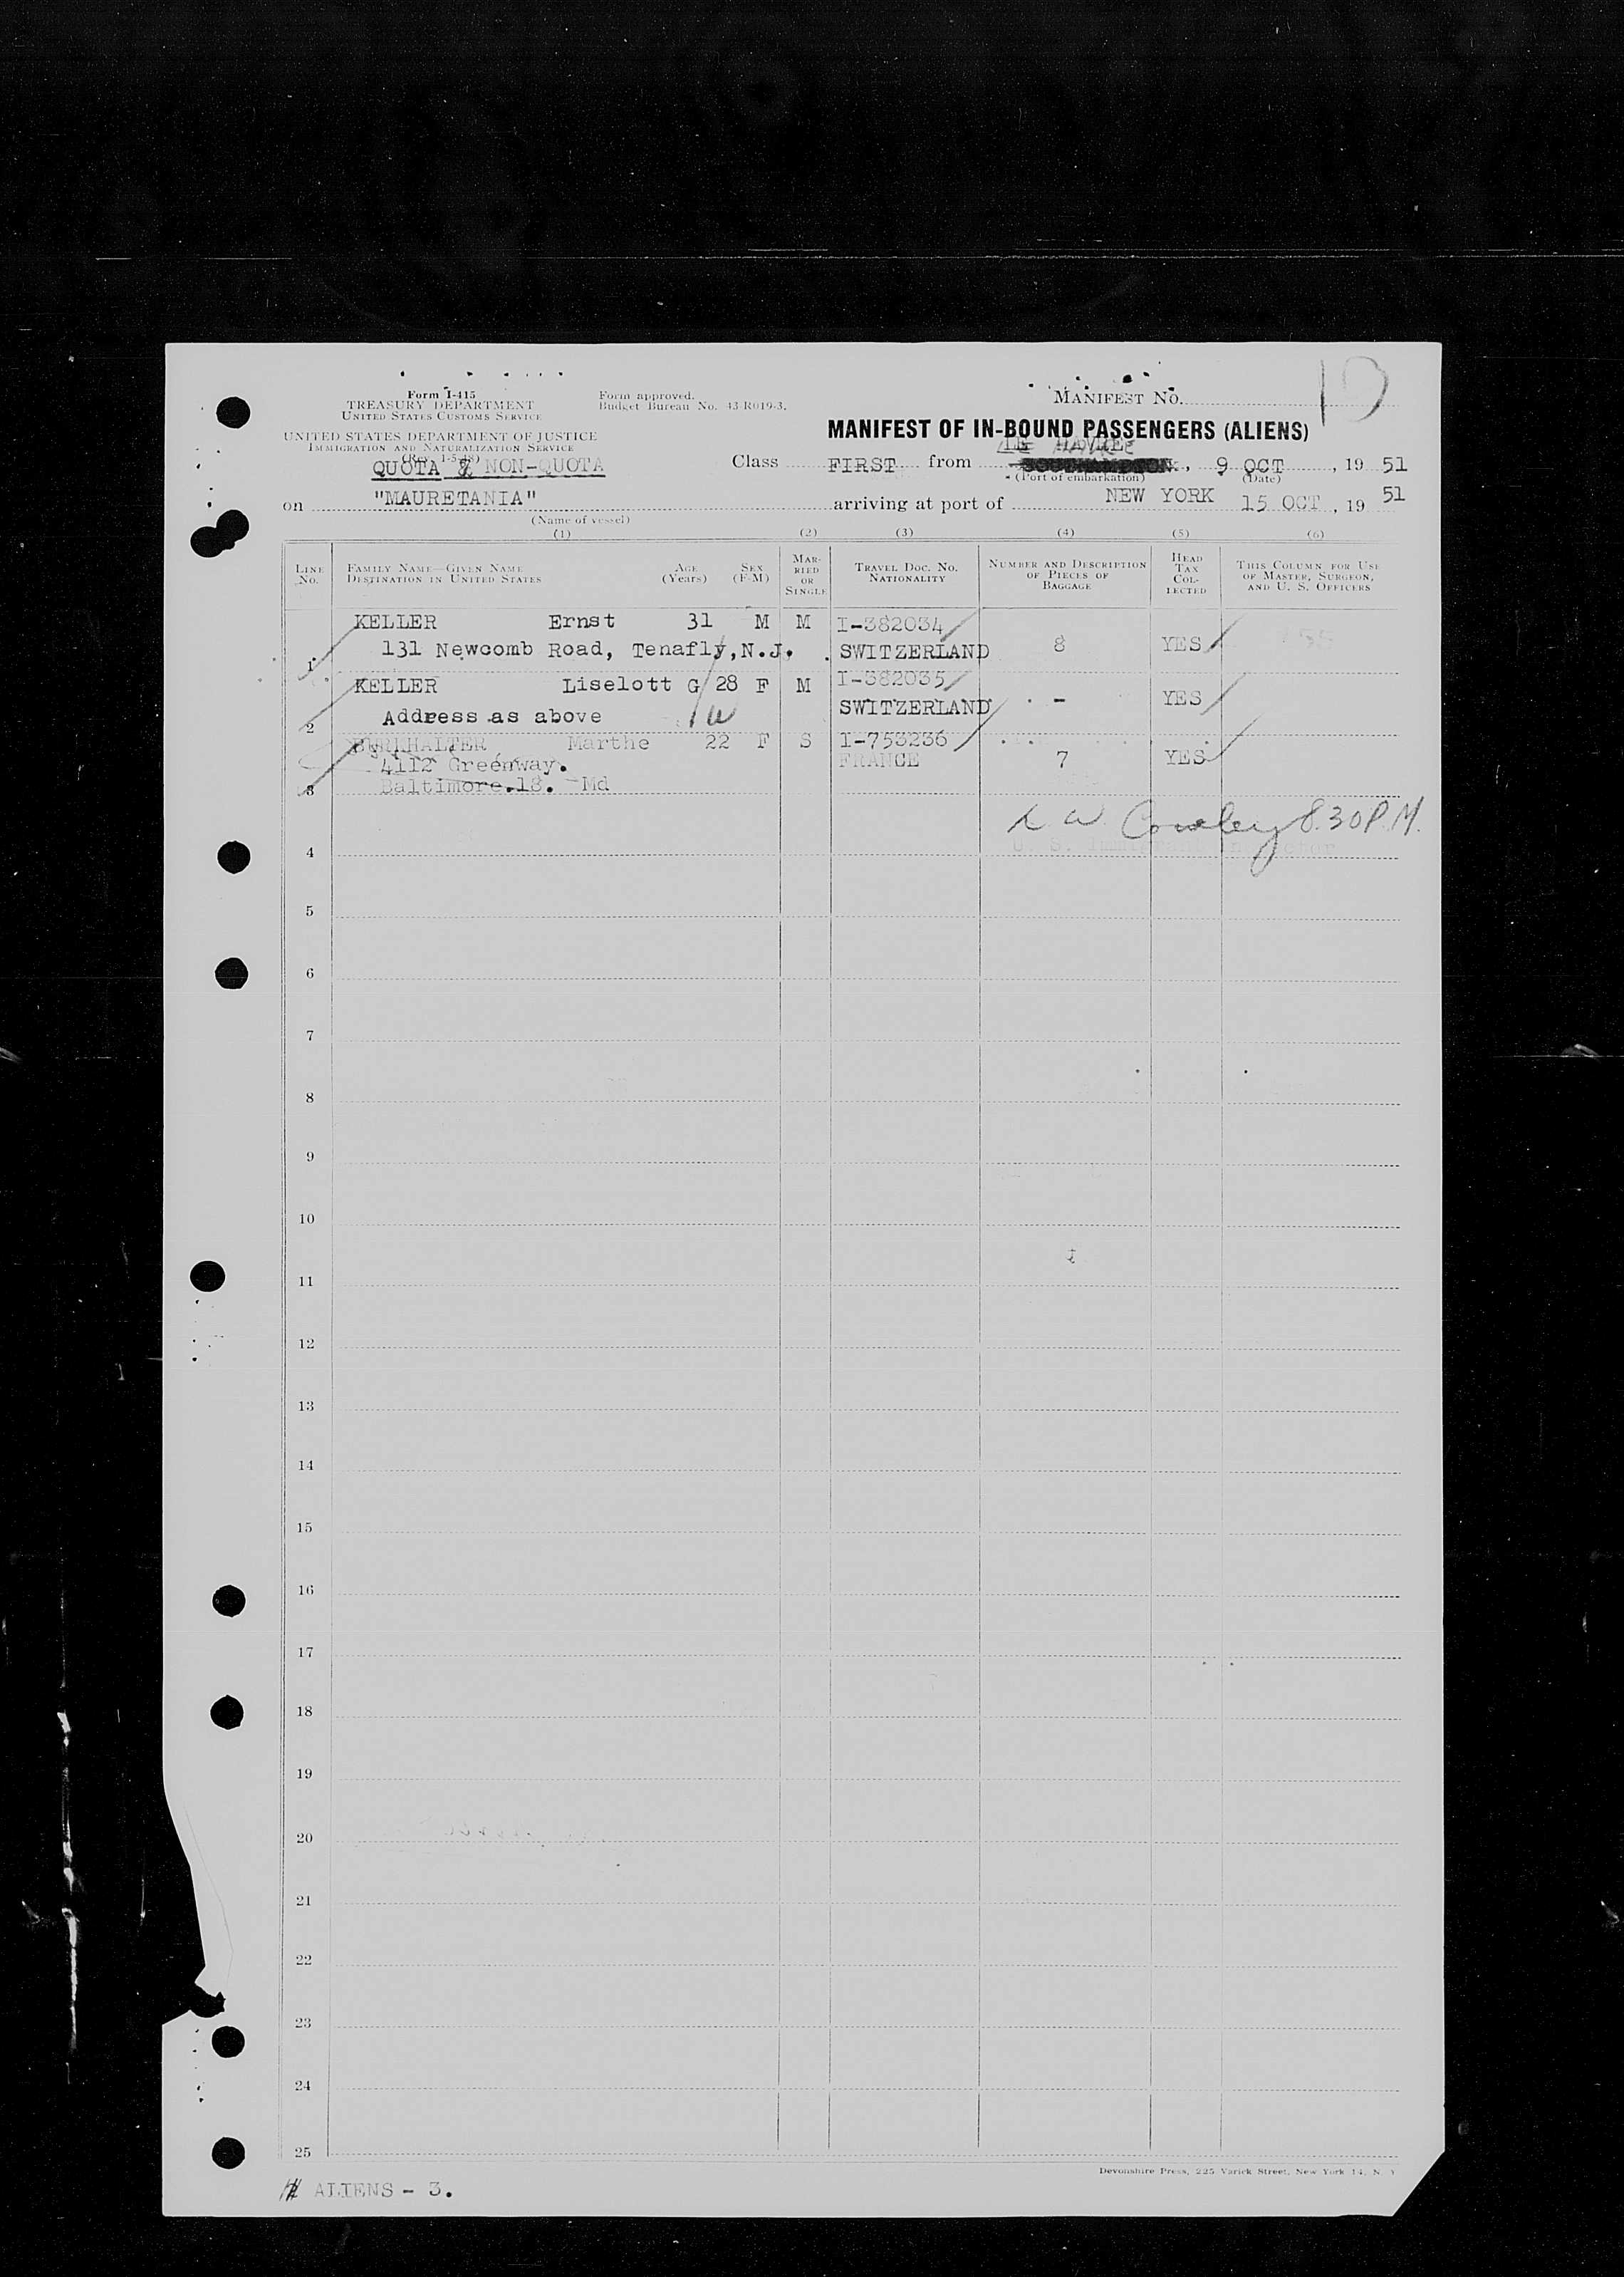 Form I-415
TREASURY DEPARTMENT
UNITED STATES CUSTOMS SERVICE
UNITED STATES DEPARTMENT OF JUSTICE
IMMIGRATION AND NATURALIZATION SERVICE
(Rev. 1-5-48)
QUOTA & NON-QUOTA
Form approved.
Budget Bureau No. 43-R019-3.
MANIFEST No.
MANIFEST OF IN-BOUND PASSENGERS (ALIENS)
LE HAVRE
Class FIRST from SOUTHAMPTON, 9 OCT, 19 51
(Port of embarkation) (Date)
on "MAURETANIA" arriving at port of NEW YORK 15 OCT, 19 51
(Name of vessel)
(1) (2) (3) (4) (5) (6)
LINE No. FAMILY NAME—GIVEN NAME DESTINATION IN UNITED STATES AGE (Years) SEX (F-M) MARRIED OR SINGLE TRAVEL DOC. No. NATIONALITY NUMBER AND DESCRIPTION OF PIECES OF BAGGAGE HEAD TAX COLLECTED THIS COLUMN FOR USE OF MASTER, SURGEON, AND U. S. OFFICERS
KELLER Ernst 31 M M I-382034
1 131 Newcomb Road, Tenafly, N.J. SWITZERLAND 8 YES
KELLER Liselott G 28 F M I-382035
2 Address as above SWITZERLAND - YES
BURKHALTER Marthe 22 F S I-753236
4112 Greenway. FRANCE 7 YES
3 Baltimore.18. Md
Cowley 8.30 P.M.
U. S. Immigrant Inspector
4
5
6
7
8
9
10
11
12
13
14
15
16
17
18
19
20
21
22
23
24
25
Devonshire Press, 225 Varick Street, New York 14, N. Y
ALIENS - 3.